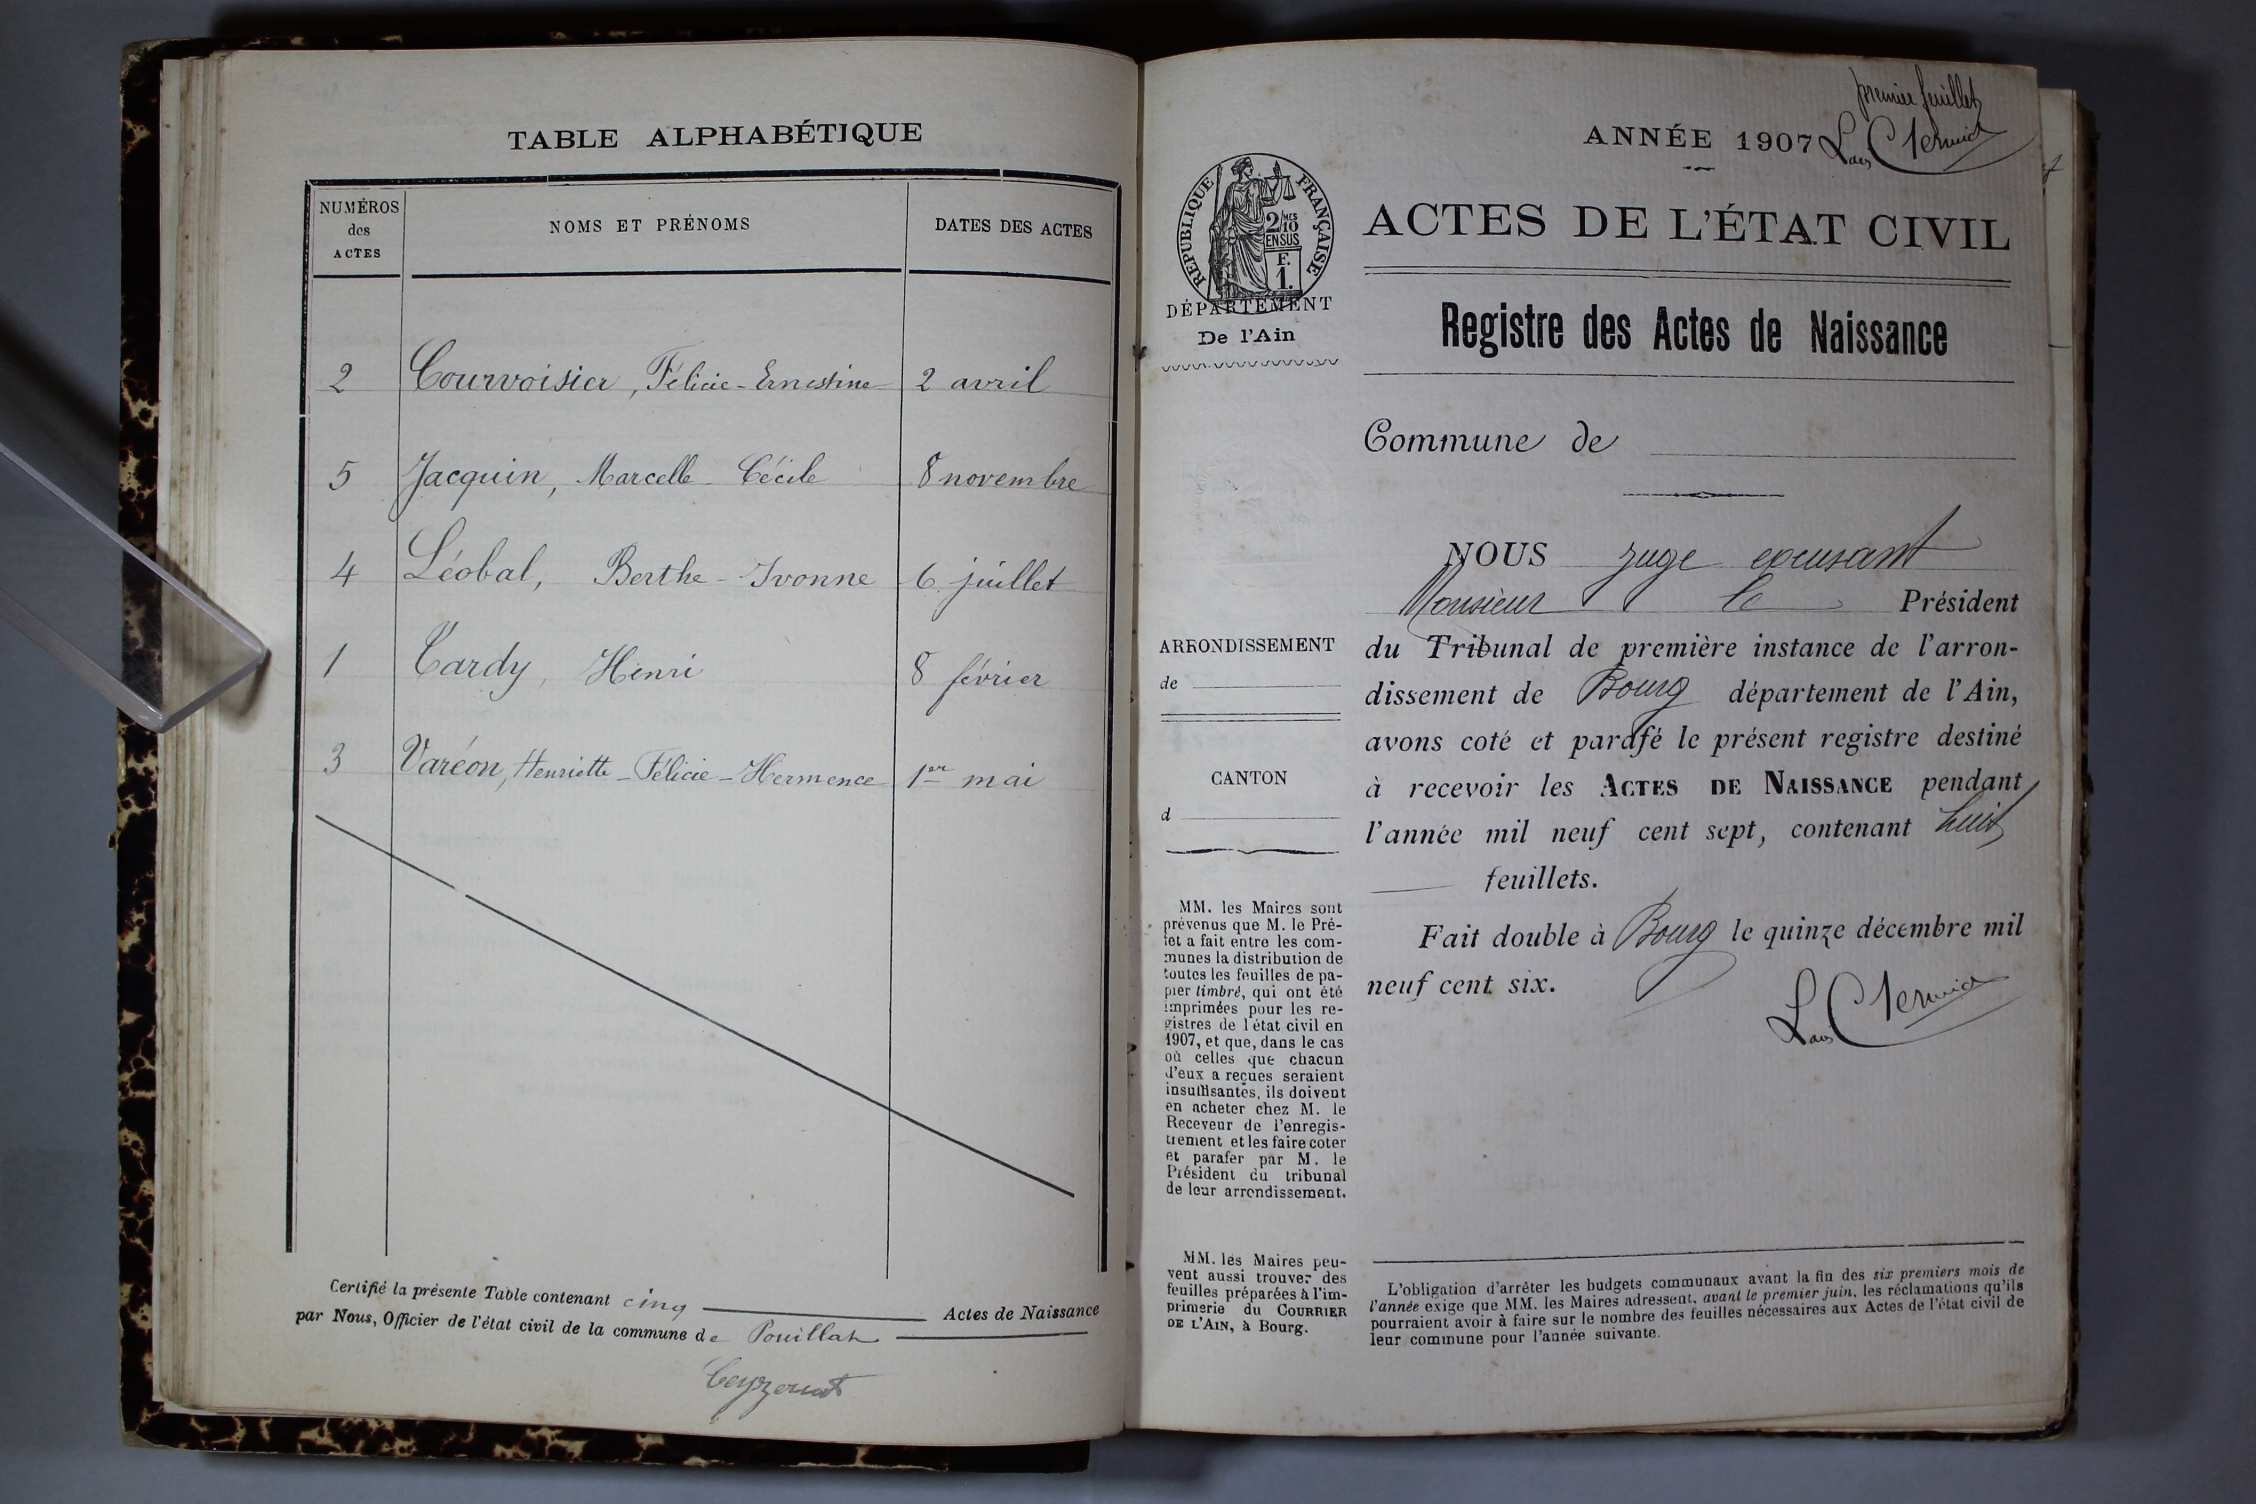 TABLE ALPHABÉTIQUE
NUMÉROS
des
ACTES
NOMS ET PRÉNOMS
DATES DES ACTES
2 Courvoisier, Félicie-Ernestine 2 avril
5 Jacquin, Marcelle Cécile 8 novembre
4 Léobal, Berthe-Yvonne 6 juillet
1 Tardy, Henri 8 février
3 Varéon, Henriette-Félicie-Hermence 1er mai
Certifié la présente Table contenant cinq Actes de Naissance
par Nous, Officier de l'état civil de la commune de Pouillat
premier feuillet
ANNÉE 1907
RÉPUBLIQUE FRANÇAISE
2/10MES
EN SUS
F.
1.
DÉPARTEMENT
De l'Ain
ACTES DE L'ÉTAT CIVIL
Registre des Actes de Naissance
Commune de
NOUS juge excusant
Monsieur le Président
du Tribunal de première instance de l'arron-
dissement de Bourg département de l'Ain,
avons coté et parafé le présent registre destiné
à recevoir les ACTES DE NAISSANCE pendant
l'année mil neuf cent sept, contenant huit
feuillets.
Fait double à Bourg le quinze décembre mil
neuf cent six.
ARRONDISSEMENT
de
CANTON
d
MM. les Maires sont
prévenus que M. le Pré-
fet a fait entre les com-
munes la distribution de
toutes les feuilles de pa-
pier timbré, qui ont été
imprimées pour les re-
gistres de l'état civil en
1907, et que, dans le cas
où celles que chacun
d'eux a reçues seraient
insuffisantes, ils doivent
en acheter chez M. le
Receveur de l'enregis-
trement et les faire coter
et parafer par M. le
Président du tribunal
de leur arrondissement.
MM. les Maires peu-
vent aussi trouver des
feuilles préparées à l'im-
primerie du COURRIER
DE L'AIN, à Bourg.
L'obligation d'arrêter les budgets communaux avant la fin des six premiers mois de
l'année exige que MM. les Maires adressent, avant le premier juin, les réclamations qu'ils
pourraient avoir à faire sur le nombre des feuilles nécessaires aux Actes de l'état civil de
leur commune pour l'année suivante.